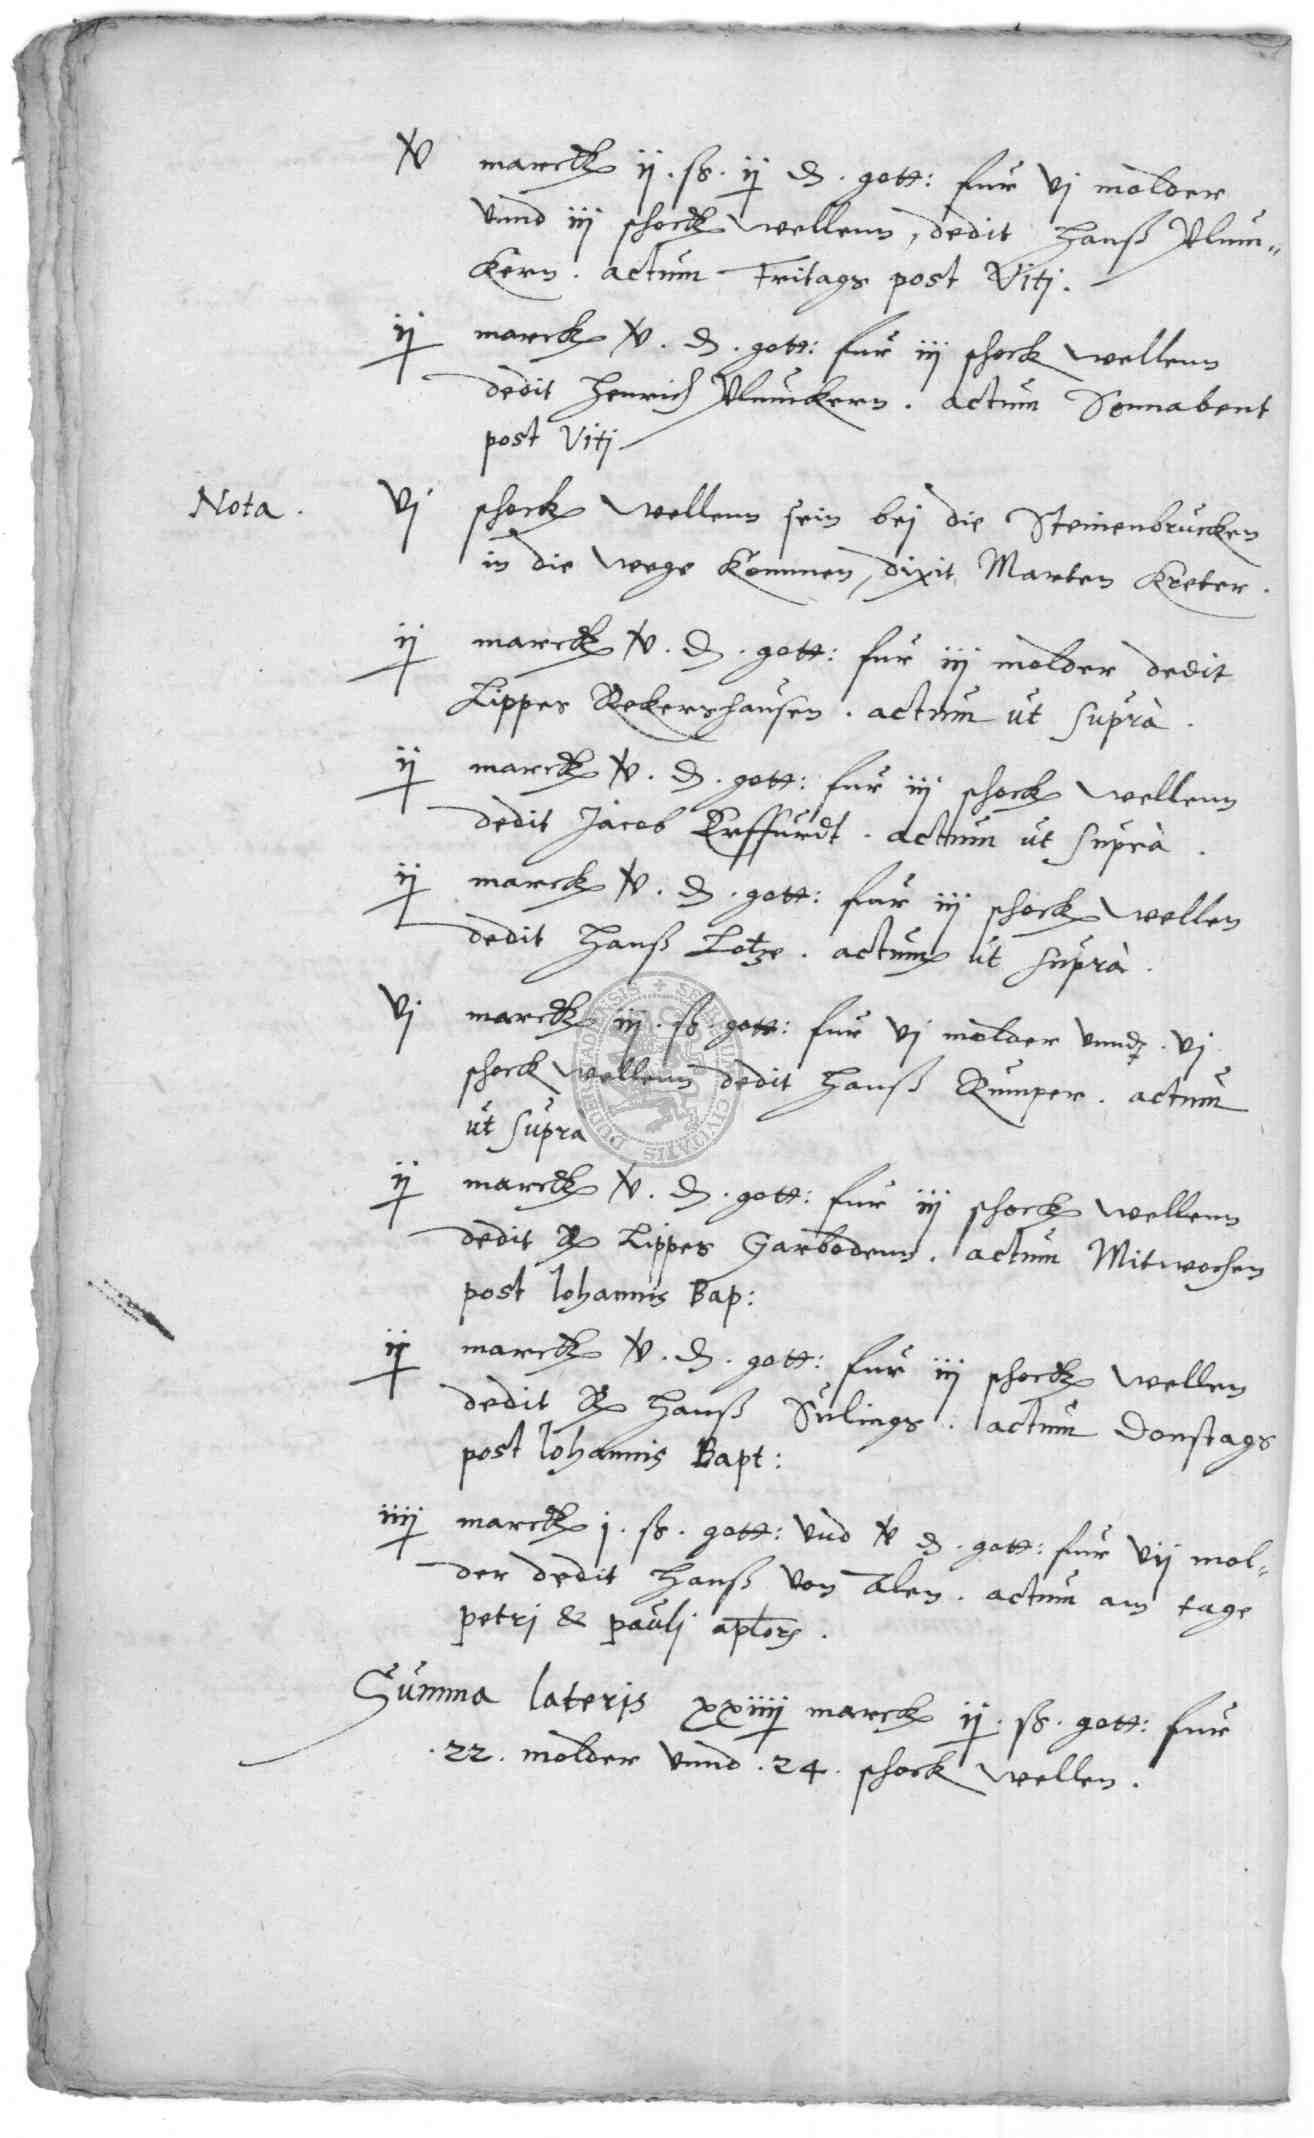 v marck ij. ß. ij d. gott: fur vj molder
vnnd iij schock wellenn, dedit Hanß Plum„
kern. actum Fritags post Viti.
ij marck v. d. gott: fur iij schock wellenn
dedit Henrich Plumckern. actum Sonnabent
post Viti
Nota. vj schock wellenn sein bej die Steinenbrucken
in die wege kommen, dixit Marten Kreter.
ij marck v. d. gott: fur iij molder dedit
Lippes Rekershausen. actum ut suprà.
ij marck v. d. gott: fur iij schock wellenn
dedit Jacob Erffurdt. actum ut suprà.
ij marck v. d. gott: fur iij schock wellen
dedit Hanß Lotze. actum ut suprà.
vj marck iij. ß. gott: fur vj molder vnnd. vj
schock wellenn dedit Hanß Rumper. actum
ut supra
ij marck v. d. gott: fur iij schock wellenn
dedit R Lippes Garbodenn. actum Mitwochen
post Iohannis Bap:
ij marck v. d. gott: fur iij schock wellen
dedit R Hanß Sulings. actum Donstags
post Iohannis Bapt:
iiij marck j. ß. gott: vnd v d. gott: fur vij mol„
der dedit Hanß von Alen. actum am tage
petri & pauli aplors.
Summa lateris xxiiij marck ij. ß. gott: fur
.22. molder vnnd .24. schock wellen.
SIGILLUM CIVITATIS DUDERSTADENSIS